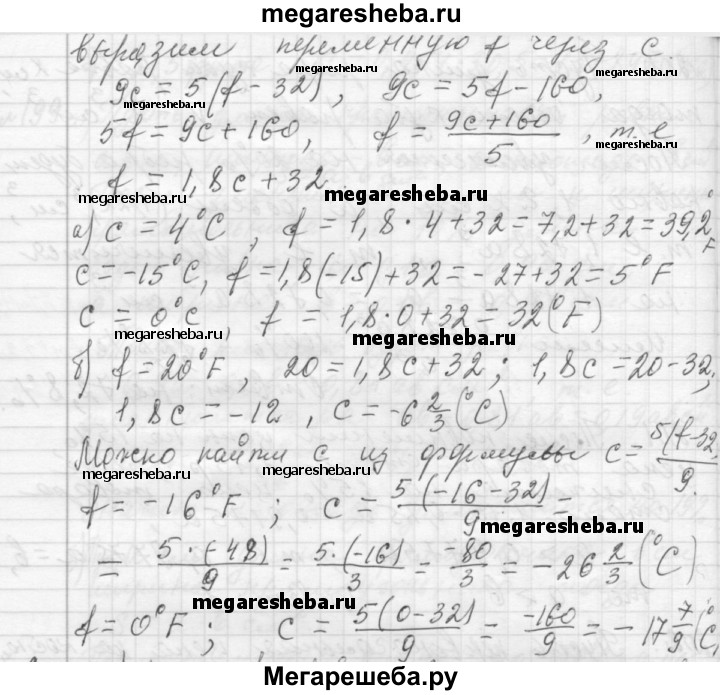 megaresheba.ru
выразим переменную f через c.
megaresheba.ru megaresheba.ru
9c = 5(f - 32), 9c = 5f - 160,
megaresheba.ru
5f = 9c + 160, f = (9c + 160)/5, т. е
megaresheba.ru
f = 1,8c + 32
megaresheba.ru megaresheba.ru
а) c = 4°C, f = 1,8 · 4 + 32 = 7,2 + 32 = 39,2°F
c = -15°C, f = 1,8(-15) + 32 = -27 + 32 = 5°F
c = 0°C, f = 1,8·0 + 32 = 32(°F)
megaresheba.ru megaresheba.ru
б) f = 20°F, 20 = 1,8c + 32; 1,8c = 20 - 32;
1,8c = -12, c = -6 2/3 (°C)
Можно найти c из формулы c = 5(f - 32)/9.
megaresheba.ru megaresheba.ru megaresheba.ru
f = -16°F; c = 5(-16 - 32)/9 =
megaresheba.ru
= 5·(-48)/9 = 5·(-16)/3 = -80/3 = -26 2/3 (°C)
megaresheba.ru
f = 0°F; c = 5(0 - 32)/9 = -160/9 = -17 7/9 (°C,
Мегарешеба.ру